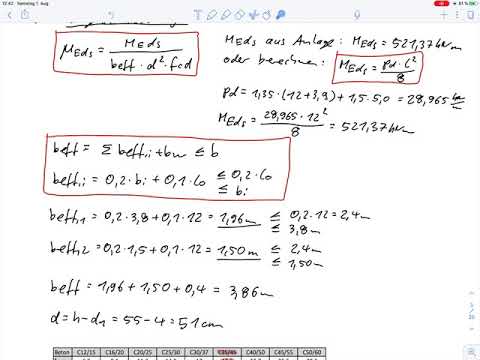 12:42 Samstag 1. Aug.
51 %
μEds = MEds / (beff · d² · fcd)
MEds aus Anlage: MEds = 521,37 kNm
oder berechnen: MEds = pd · l² / 8
pd = 1,35 · (12 + 3,9) + 1,5 · 5,0 = 28,965 kN/m
MEds = 28,965 · 12² / 8 = 521,37 kNm
beff = Σ beff,i + bw ≤ b
beff,i = 0,2 · bi + 0,1 · l0 ≤ 0,2 · l0
≤ bi
beff,1 = 0,2 · 3,8 + 0,1 · 12 = 1,96 m ≤ 0,2 · 12 = 2,4 m
≤ 3,8 m
beff,2 = 0,2 · 1,5 + 0,1 · 12 = 1,50 m ≤ 2,4 m
≤ 1,50 m
beff = 1,96 + 1,50 + 0,4 = 3,86 m
d = h - d1 = 55 - 4 = 51 cm
Beton C12/15 C16/20 C20/25 C25/30 C30/37 C35/45 C40/50 C45/55 C50/60